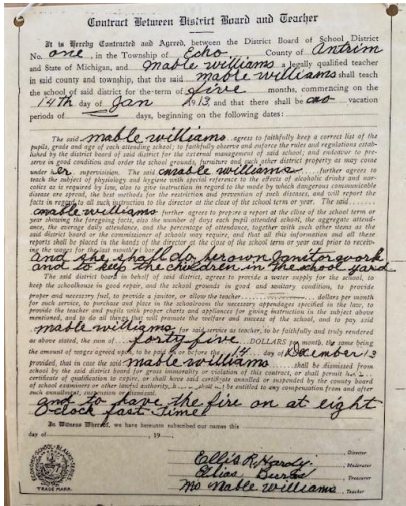 Contract Between District Board and Teacher
It is Hereby Contracted and Agreed, between the District Board of School District
No. one, in the Township of Echo County of Antrim
and State of Michigan, and Mable Williams a legally qualified teacher
in said county and township, that the said Mable Williams shall teach
the school of said district for the term of five months, commencing on the
14th day of Jan 1913, and that there shall be no vacation
periods of days, beginning on the following dates:
The said Mable Williams agrees to faithfully keep a correct list of the
pupils, grade and age of each attending school; to faithfully observe and enforce the rules and regulations estab-
lished by the district board of said district for the external management of said school; and endeavor to pre-
serve in good condition and order the school grounds, furniture and such other district property as may come
under her supervision. The said Mable Williams further agrees to
teach the subject of physiology and hygiene with special reference to the effects of alcoholic drinks and nar-
cotics as is required by law, also to give instruction in regard to the mode by which dangerous communicable
disease are spread, the best methods for the restriction and prevention of such diseases, and will report the
facts in regard to all such instruction to the director at the close of the school term or year. The said
Mable Williams further agrees to prepare a report at the close of the school term or
year showing the foregoing facts, also the number of days each pupil attended school, the aggregate attend-
ance, the average daily attendance, and the percentage of attendance, together with such other items as the
said district board or the commissioner of schools may require, and that all this information and all these
reports shall be placed in the hands of the director at the close of the school term or year and prior to receiv-
ing the wages for the last month
and she shall do her own Janitor work
and to keep the children in the school yard
The said district board in behalf of said district, agrees to provide a water supply for the school, to
keep the schoolhouse in good repair, and the school grounds in good and sanitary condition, to provide
proper and necessary fuel, to provide a janitor, or allow the teacher dollars per month
for such service, to purchase and place in the schoolroom the necessary appendages specified in the law, to
provide the teacher and pupils with proper charts and appliances for giving instruction in the subject above
mentioned, and to do all things that will promote the welfare and success of the school, and to pay said
Mable Williams, for said service as teacher, to be faithfully and truly rendered
as above stated, the sum of forty five DOLLARS per month, the same being
the amount of wages agreed upon, to be paid on or before the 14 day of December 13
provided, that in case the said Mable Williams shall be dismissed from
school by the said district board for gross immorality or violation of this contract, or shall permit
certificate of qualification to expire, or shall have said certificate annulled or suspended by the county board
of school examiners or other lawful authority, shall not be entitled to any compensation from and after
such annullment, suspension or dismissal.
and to have the fire on at eight
O'clock fast time
In Witness Whereof, we have hereunto subscribed our names this
day of 19
Ellis R. Hardy Director
Elias Moderator
Treasurer
Mable Williams Teacher
TRADE MARK